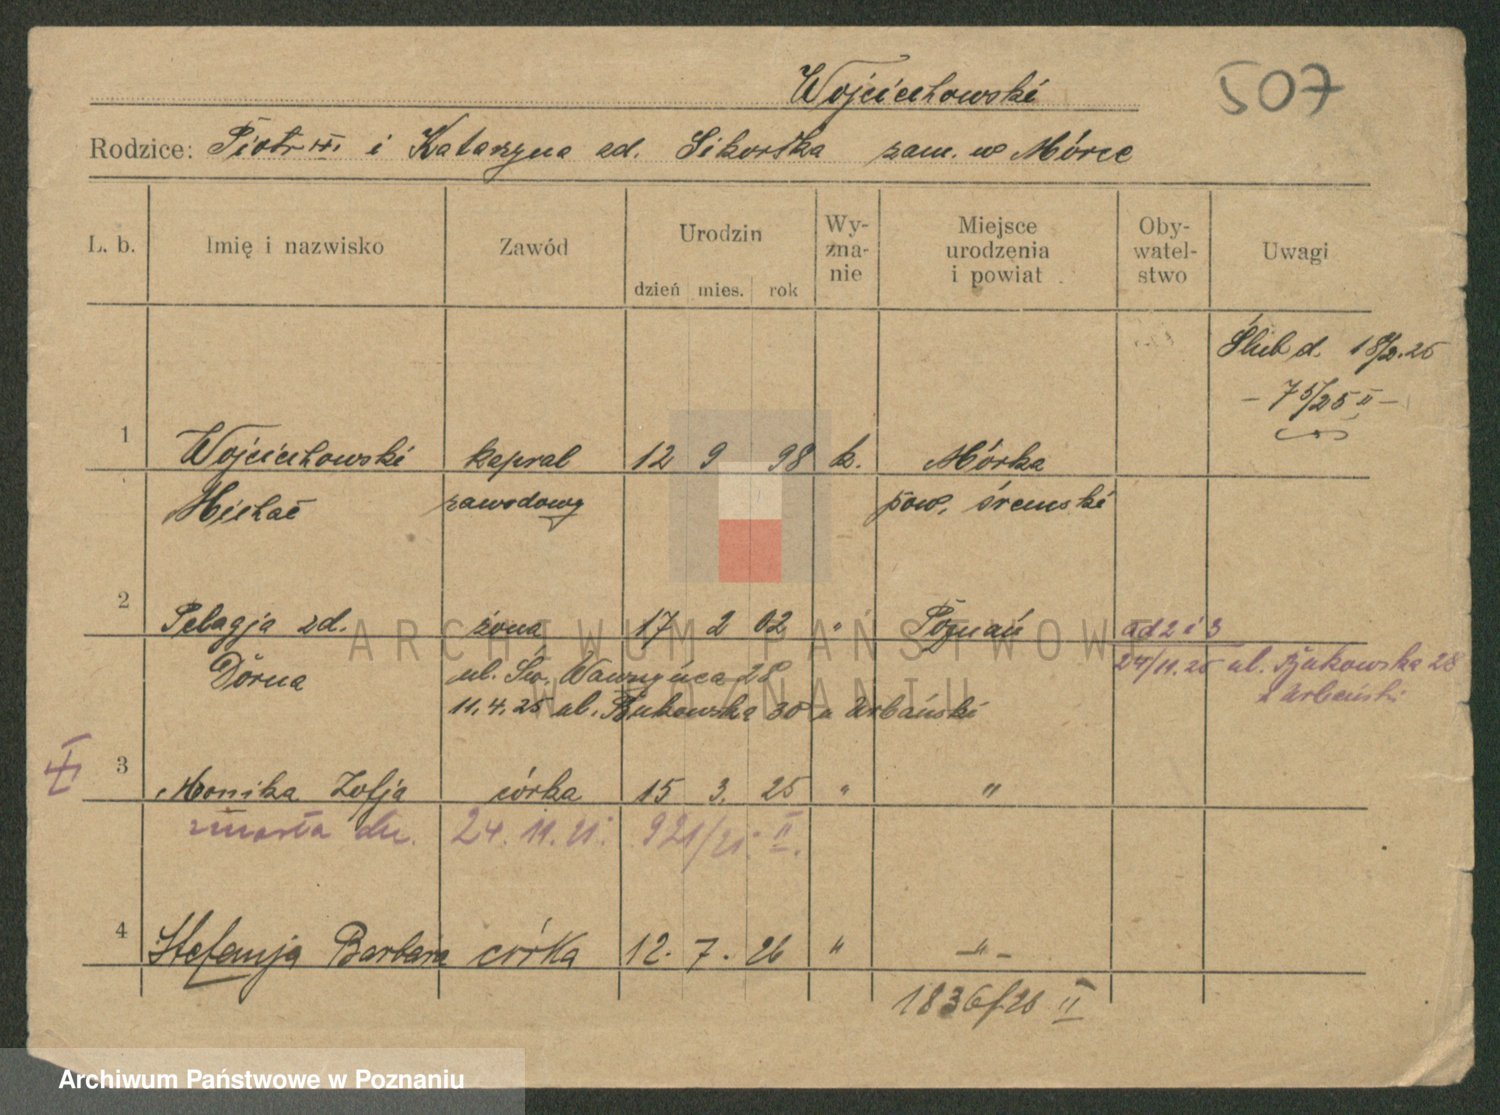 Wojciechowski
507
Rodzice: Piotr i Katarzyna zd. Sikorska zam. w Mórce
L. b.
Imię i nazwisko
Zawód
Urodzin
dzień mies. rok
Wy-
zna-
nie
Miejsce
urodzenia
i powiat
Oby-
watel-
stwo
Uwagi
Ślub d. 18/2.25
- 75/25 II -
1 Wojciechowski kapral 12 9 98 k. Mórka
Michał zawodowy pow. śremski
2 Pelagja zd. żona 17 2 02 " Poznań ad 2 i 3
Dörna ul. Św. Wawrzyńca 28 24/11.25 ul. Bukowska 28
11.4.25 ul. Bukowska 30 u Urbański z Urbański
3 Monika Zofja córka 15 3. 25 " "
zmarła dn. 24. 11. 21/ II.
4 Stefanja Barbara córka 12. 7. 26 " - " -
1836/26 II
ARCHIWUM PAŃSTWOWE
W POZNANIU
Archiwum Państwowe w Poznaniu